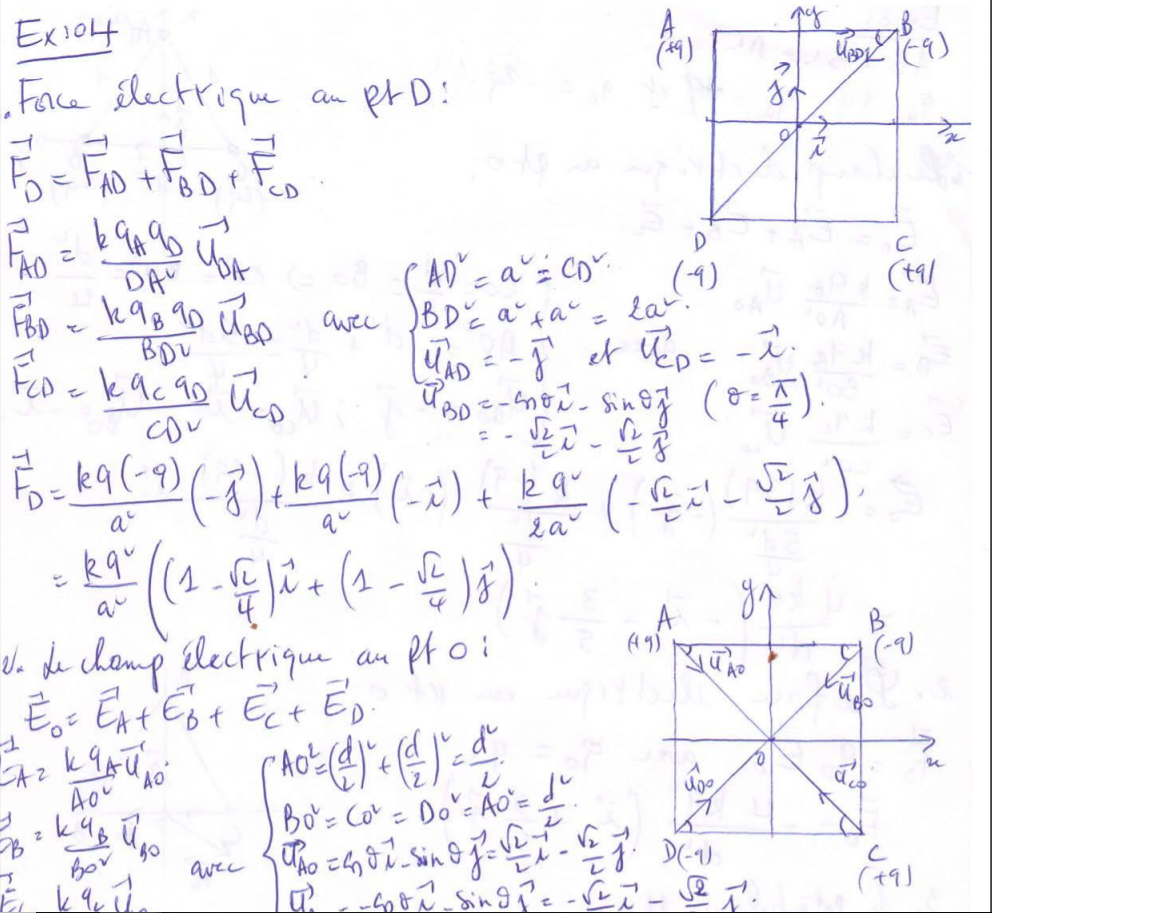 Exo4
A
(+q)
y
B
(-q)
u⃗_BD
j⃗
O
i⃗
x
D
(-q)
C
(+q)
. Force électrique au pt D :
F⃗_D = F⃗_AD + F⃗_BD + F⃗_CD .
F⃗_AD = k q_A q_D / DA² U⃗_DA
F⃗_BD = k q_B q_D / BD² U⃗_BD avec
F⃗_CD = k q_C q_D / CD² U⃗_CD
AD² = a² = CD².
BD² = a² + a² = 2a².
U⃗_AD = -j⃗ et U⃗_CD = -i⃗.
U⃗_BD = -cosθ i⃗ - sinθ j⃗ (θ = π/4).
= -√2/2 i⃗ - √2/2 j⃗
F⃗_D = kq(-q)/a² (-j⃗) + kq(-q)/a² (-i⃗) + k q²/2a² (-√2/2 i⃗ - √2/2 j⃗).
= kq²/a² ((1 - √2/4) i⃗ + (1 - √2/4) j⃗).
2. Le champ électrique au pt O :
E⃗_O = E⃗_A + E⃗_B + E⃗_C + E⃗_D.
E⃗_A = k q_A/AO² U⃗_AO
E⃗_B = k q_B/BO² U⃗_BO
avec
AO² = (d/2)² + (d/2)² = d²/2
BO² = CO² = DO² = AO² = d²/2.
U⃗_AO = cosθ i⃗ - sinθ j⃗ = √2/2 i⃗ - √2/2 j⃗.
= -cosθ i⃗ - sinθ j⃗ = -√2/2 i⃗ - √2/2 j⃗.
y
A
(+q)
B
(-q)
u⃗_AO
u⃗_BO
O
x
u⃗_DO
u⃗_CO
D(-q)
C
(+q)